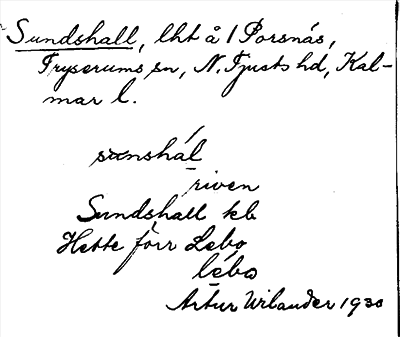 Sundshall, lht å 1 Porsnäs,
Tryserums sn, N. Tjusts hd, Kal-
mar l.
sunshál
riven
Sundshall kb
Hette förr Lebo
lébo
Artur Wilander 1930